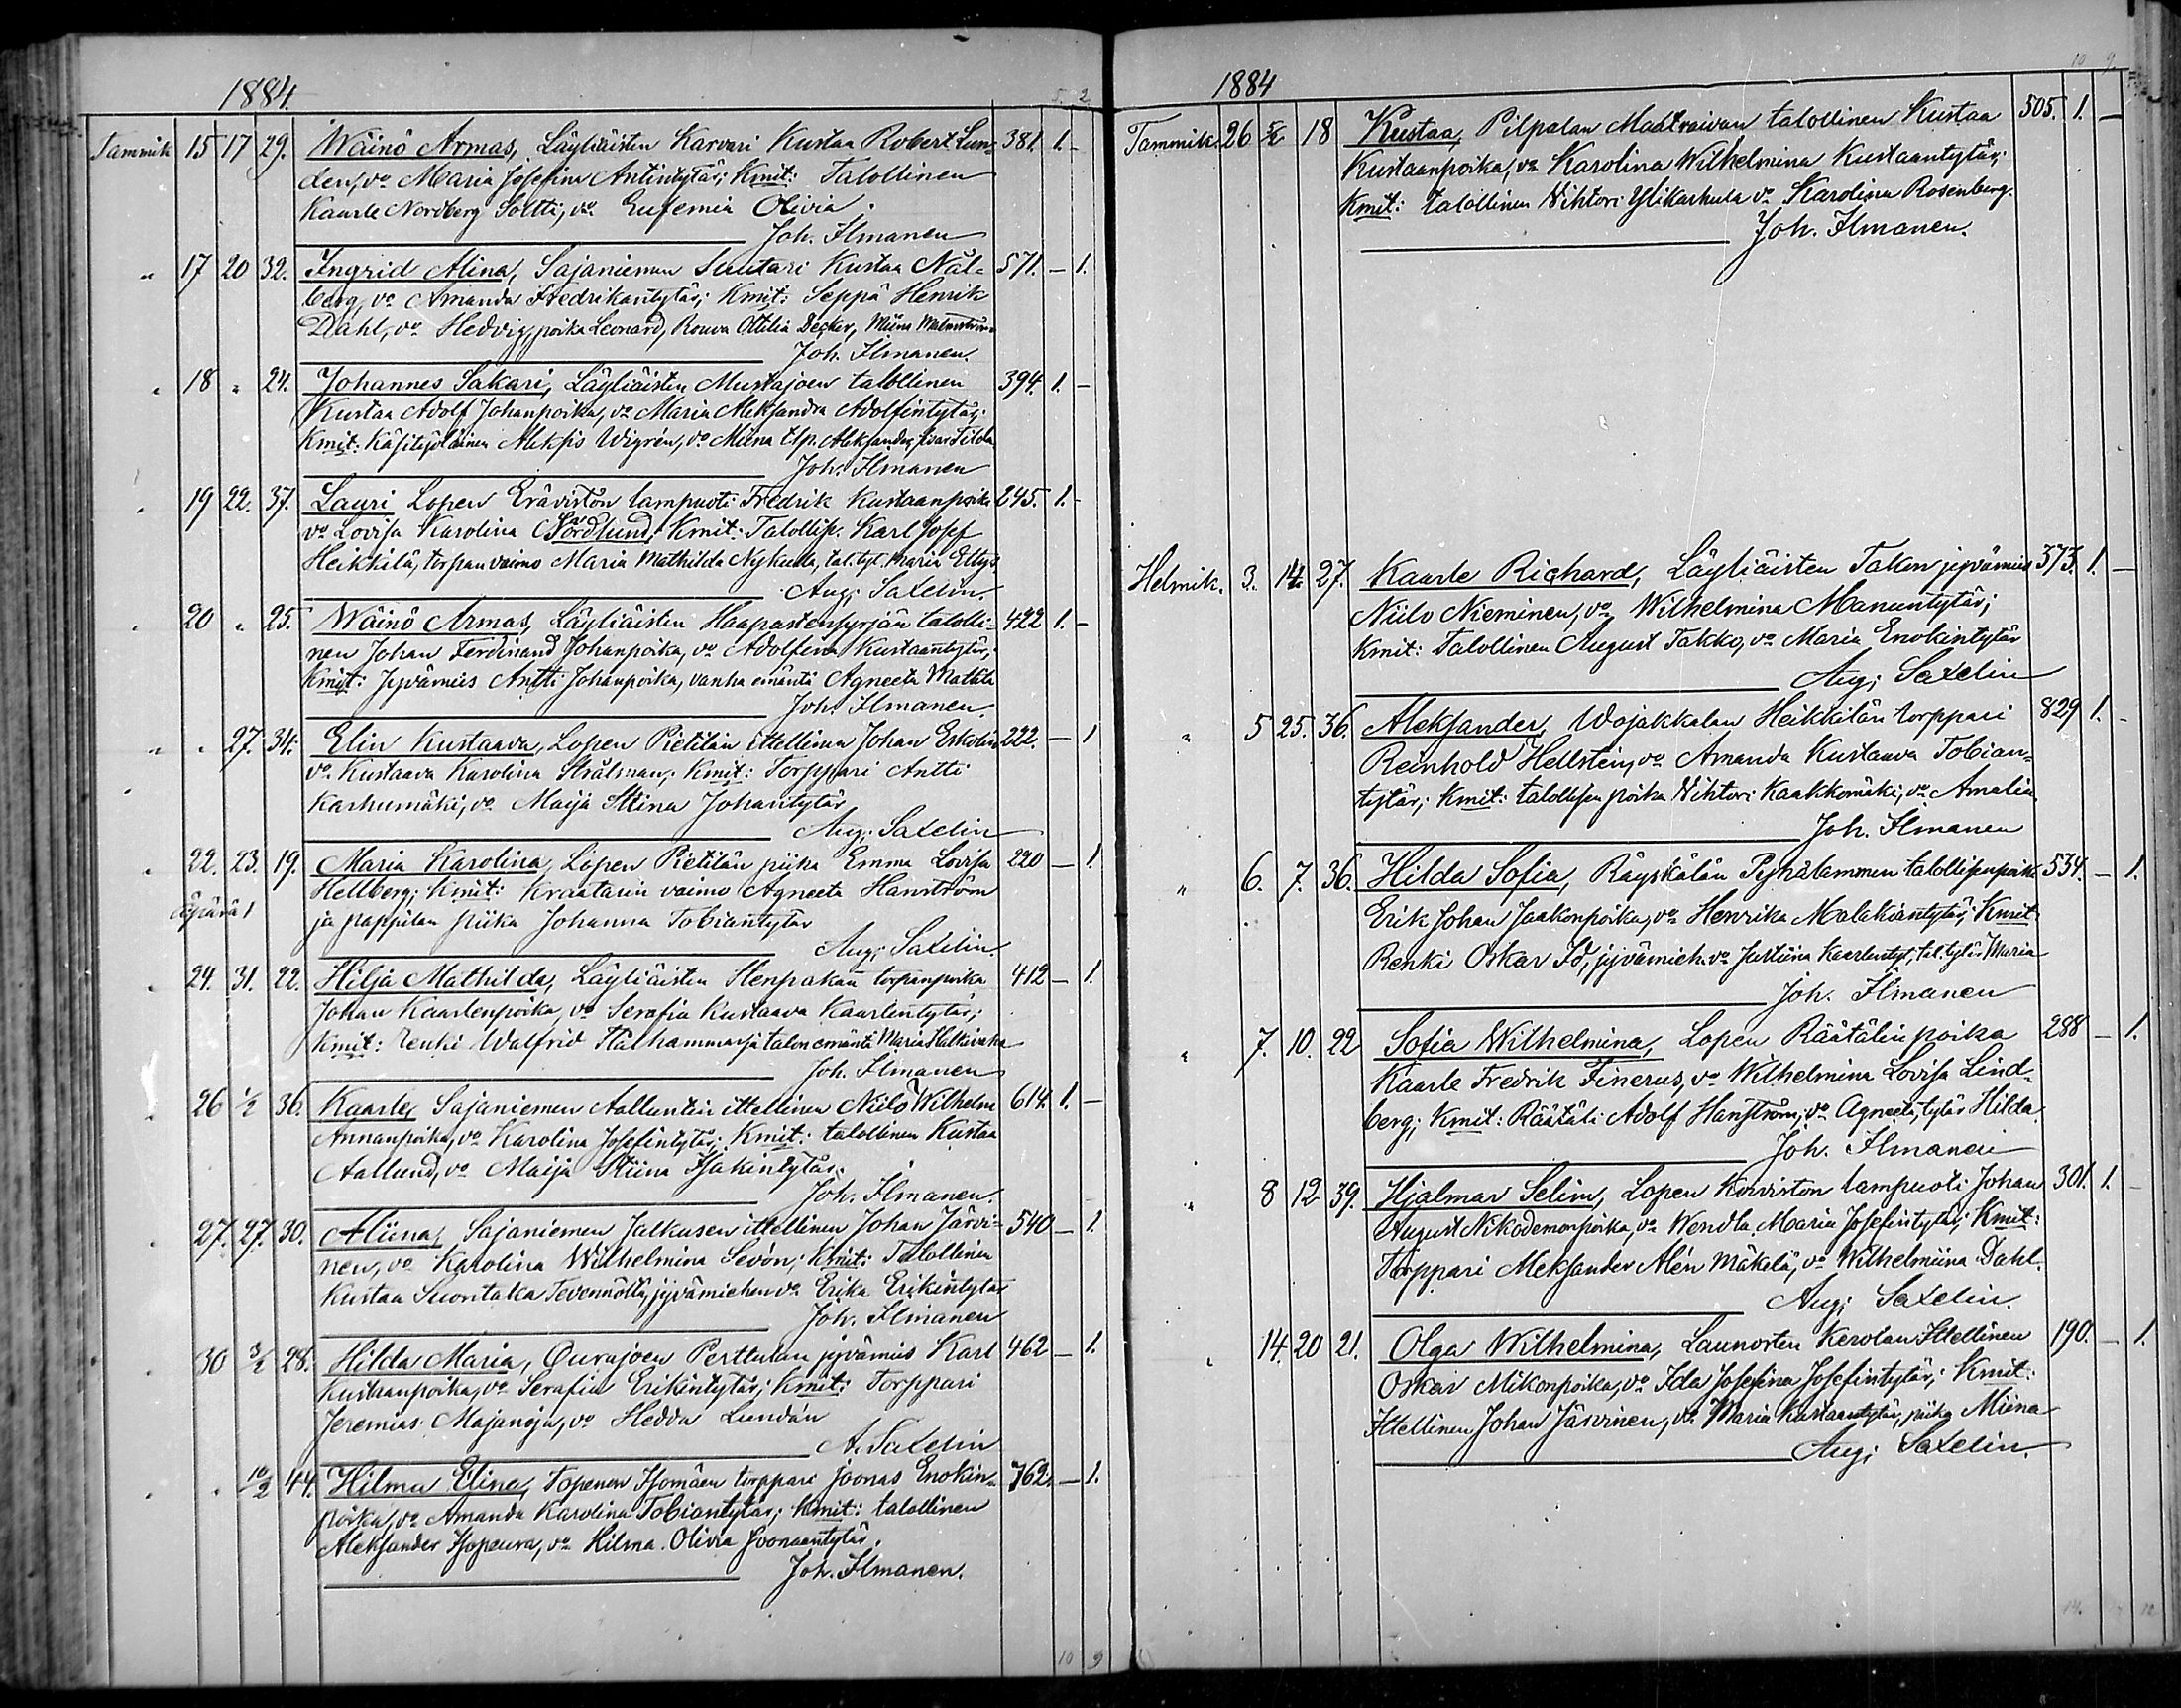 1884.
5. 2
Tammik 15 17 29. Wäinö Armas, Läyliäisten Karvari Kustaa Robert Lun- 381. 1. -
den, vo Maria Josefina Antintytär; Kmit: Talollinen
Kaarle Nordberg Soltti, vo Eufemia Olivia.
Joh. Ilmanen
" 17 20 32. Ingrid Alina, Sajaniemen Suutari Kustaa Näl- 571. - 1.
berg, vo Amanda Fredrikantytär; Kmit: Seppä Henrik
Dahl, vo Hedvig, poika Leonard, Rouva Ottilia Decker, Miina
Joh. Ilmanen.
" 18 " 24. Johannes Sakari, Läyliäisten Mustajoen talollinen 394. 1. -
Kustaa Adolf Johanpoika, vo Maria Aleksandra Adolfintytär;
Kmit: Käsityöläinen Aleksis Wigrén, vo Miina t.lp. Aleksander, sisar Tilda
Joh. Ilmanen
" 19 22. 37. Lauri Lopen Eräviston lampuoti Fredrik Kustaanpoika 245. 1. -
vo Lovisa Karolina (Nordlund; Kmit: Talollip. Karl Josef
Heikkilä, torpan vaimo Maria Mathilda Nykulla, tal. tyt. Maria Ellys
Aug; Saxelin.
" 20 " 25. Wäinö Armas, Läyliäisten Haapastensyrjän talolli- 422 1. -
nen Johan Ferdinand Johanpoika, vo Adolfina Kustaantytär;
Kmit: Jyvämies Antti Johanpoika, vanha emäntä Agneeta Matila
Joh. Ilmanen.
" " 27. 34. Elin Kustaava, Lopen Pietilän ittellinen Johan Eskolin 222. - 1
vo Kustaava Karolina Strålman; Kmit: Torppari Antti
Karhumäki, vo Maija Stiina Johantytär
Aug; Saxelin
" 22. 23. 19. Maria Karolina, Lopen Pietilän piika Emma Lovisa 220 - 1.
äpärä! Hellberg; Kmit: Kraatarin vaimo Agneeta Hanström
ja pappilan piika Johanna Tobiantytär
Aug; Saxelin.
" 24. 31. 22. Hilja Mathilda, Läyliäisten Stenpakan torpanpoika 412 - 1.
Johan Kaarlenpoika, vo Serafia Kustaava Kaarlentytär;
Kmit: renki Walfrid Stålhammar ja talon emäntä Maria Halkivaha
Joh. Ilmanen
" 26 1/2 36. Kaarle, Sajaniemen Aalluntin ittellinen Niilo Wilhelm 614. 1. -
Annanpoika, vo Karolina Josefintytär; Kmit: talollinen Kustaa
Aallund, vo Maija Stiina Isakintytär.
Joh. Ilmanen.
" 27. 27. 30. Aliina, Sajaniemen Jalkusen ittellinen Johan Järvi- 540 - 1.
nen, vo Karolina Wilhelmina Sevón; Kmit: Talollinen
Kustaa Suontaka Tevennöltä, jyvämiehen vo Erika Erikintytär
Joh. Ilmanen
" 30 3/2 28. Hilda Maria, Ourajoen Perttulan jyvämies Karl 462 - 1.
Kustaanpoika, vo Serafia Erikintytär; Kmit: Torppari
Jeremias Majanoja, vo Hedda Lundán
A. Saxelin
" " 10/2 44. Hilma Elina, Topenon Isomäen torppari Joonas Enokin- 762. - 1.
poika, vo Amanda Karolina Tobiantytär; Kmit: talollinen
Aleksander Isopeura, vo Hilma Olivia Joonaantytär.
Joh. Ilmanen.
10 9
1884
10 9
Tammik. 26 5/2 18 Kustaa, Pilpalan Maatraivan talollinen Kustaa 505. 1. -
Kustaanpoika, vo Karolina Wilhelmina Kustaantytär;
Kmit: talollinen Wihtori Ylikarhula vo Karolina Rosenberg.
Joh. Ilmanen.
Helmik. 3. 14. 27. Kaarle Richard, Läyliäisten Takon jyvämies 373. 1. -
Niilo Nieminen, vo Wilhelmina Manuntytär;
Kmit: Talollinen August Takko, vo Maria Enokintytär
Aug; Saxelin
" 5 25. 36. Aleksander, Wojakkalan Heikkilän torppari 829 1. -
Reinhold Hellstein, vo Amanda Kustaava Tobian-
tytär; Kmit: talollisen poika Wihtori Kaakkomäki, vo Amalia.
Joh. Ilmanen
" 6. 7. 36. Hilda Sofia, Räyskälän Pyhälammen talollisenpoika 534. - 1.
Erik Johan Jaakonpoika, vo Henrika Malakiantytär; Kmit:
Renki Oskar Id, jyvämieh. vo Justiina Kaarlentyt, tal. tytär Maria
Joh. Ilmanen
" 7. 10. 22 Sofia Wilhelmina, Lopen Räätälin poika 288 - 1.
Kaarle Fredrik Finerus, vo Wilhelmina Lovisa Lind-
berg; Kmit: Räätäli Adolf Hanström; vo Agneeta, tytär Hilda.
Joh. Ilmanen
" 8 12 39. Hjalmar Selim, Lopen Koiviston lampuoti Johan 301. 1. -
August Nikodemonpoika, vo Wendla Maria Josefintytär; Kmit:
Torppari Aleksander Alén Mäkelä, vo Wilhelmiina Dahl.
Aug; Saxelin.
" 14. 20 21. Olga Wilhelmina, Launosten Kerolan Ittellinen 190. - 1.
Oskar Mikonpoika, vo Ida Josefina Josefintytär; Kmit:
Ittellinen Johan Järvinen, vo Maria Kustaantytär, piika Miina
Aug; Saxelin.
14. 12